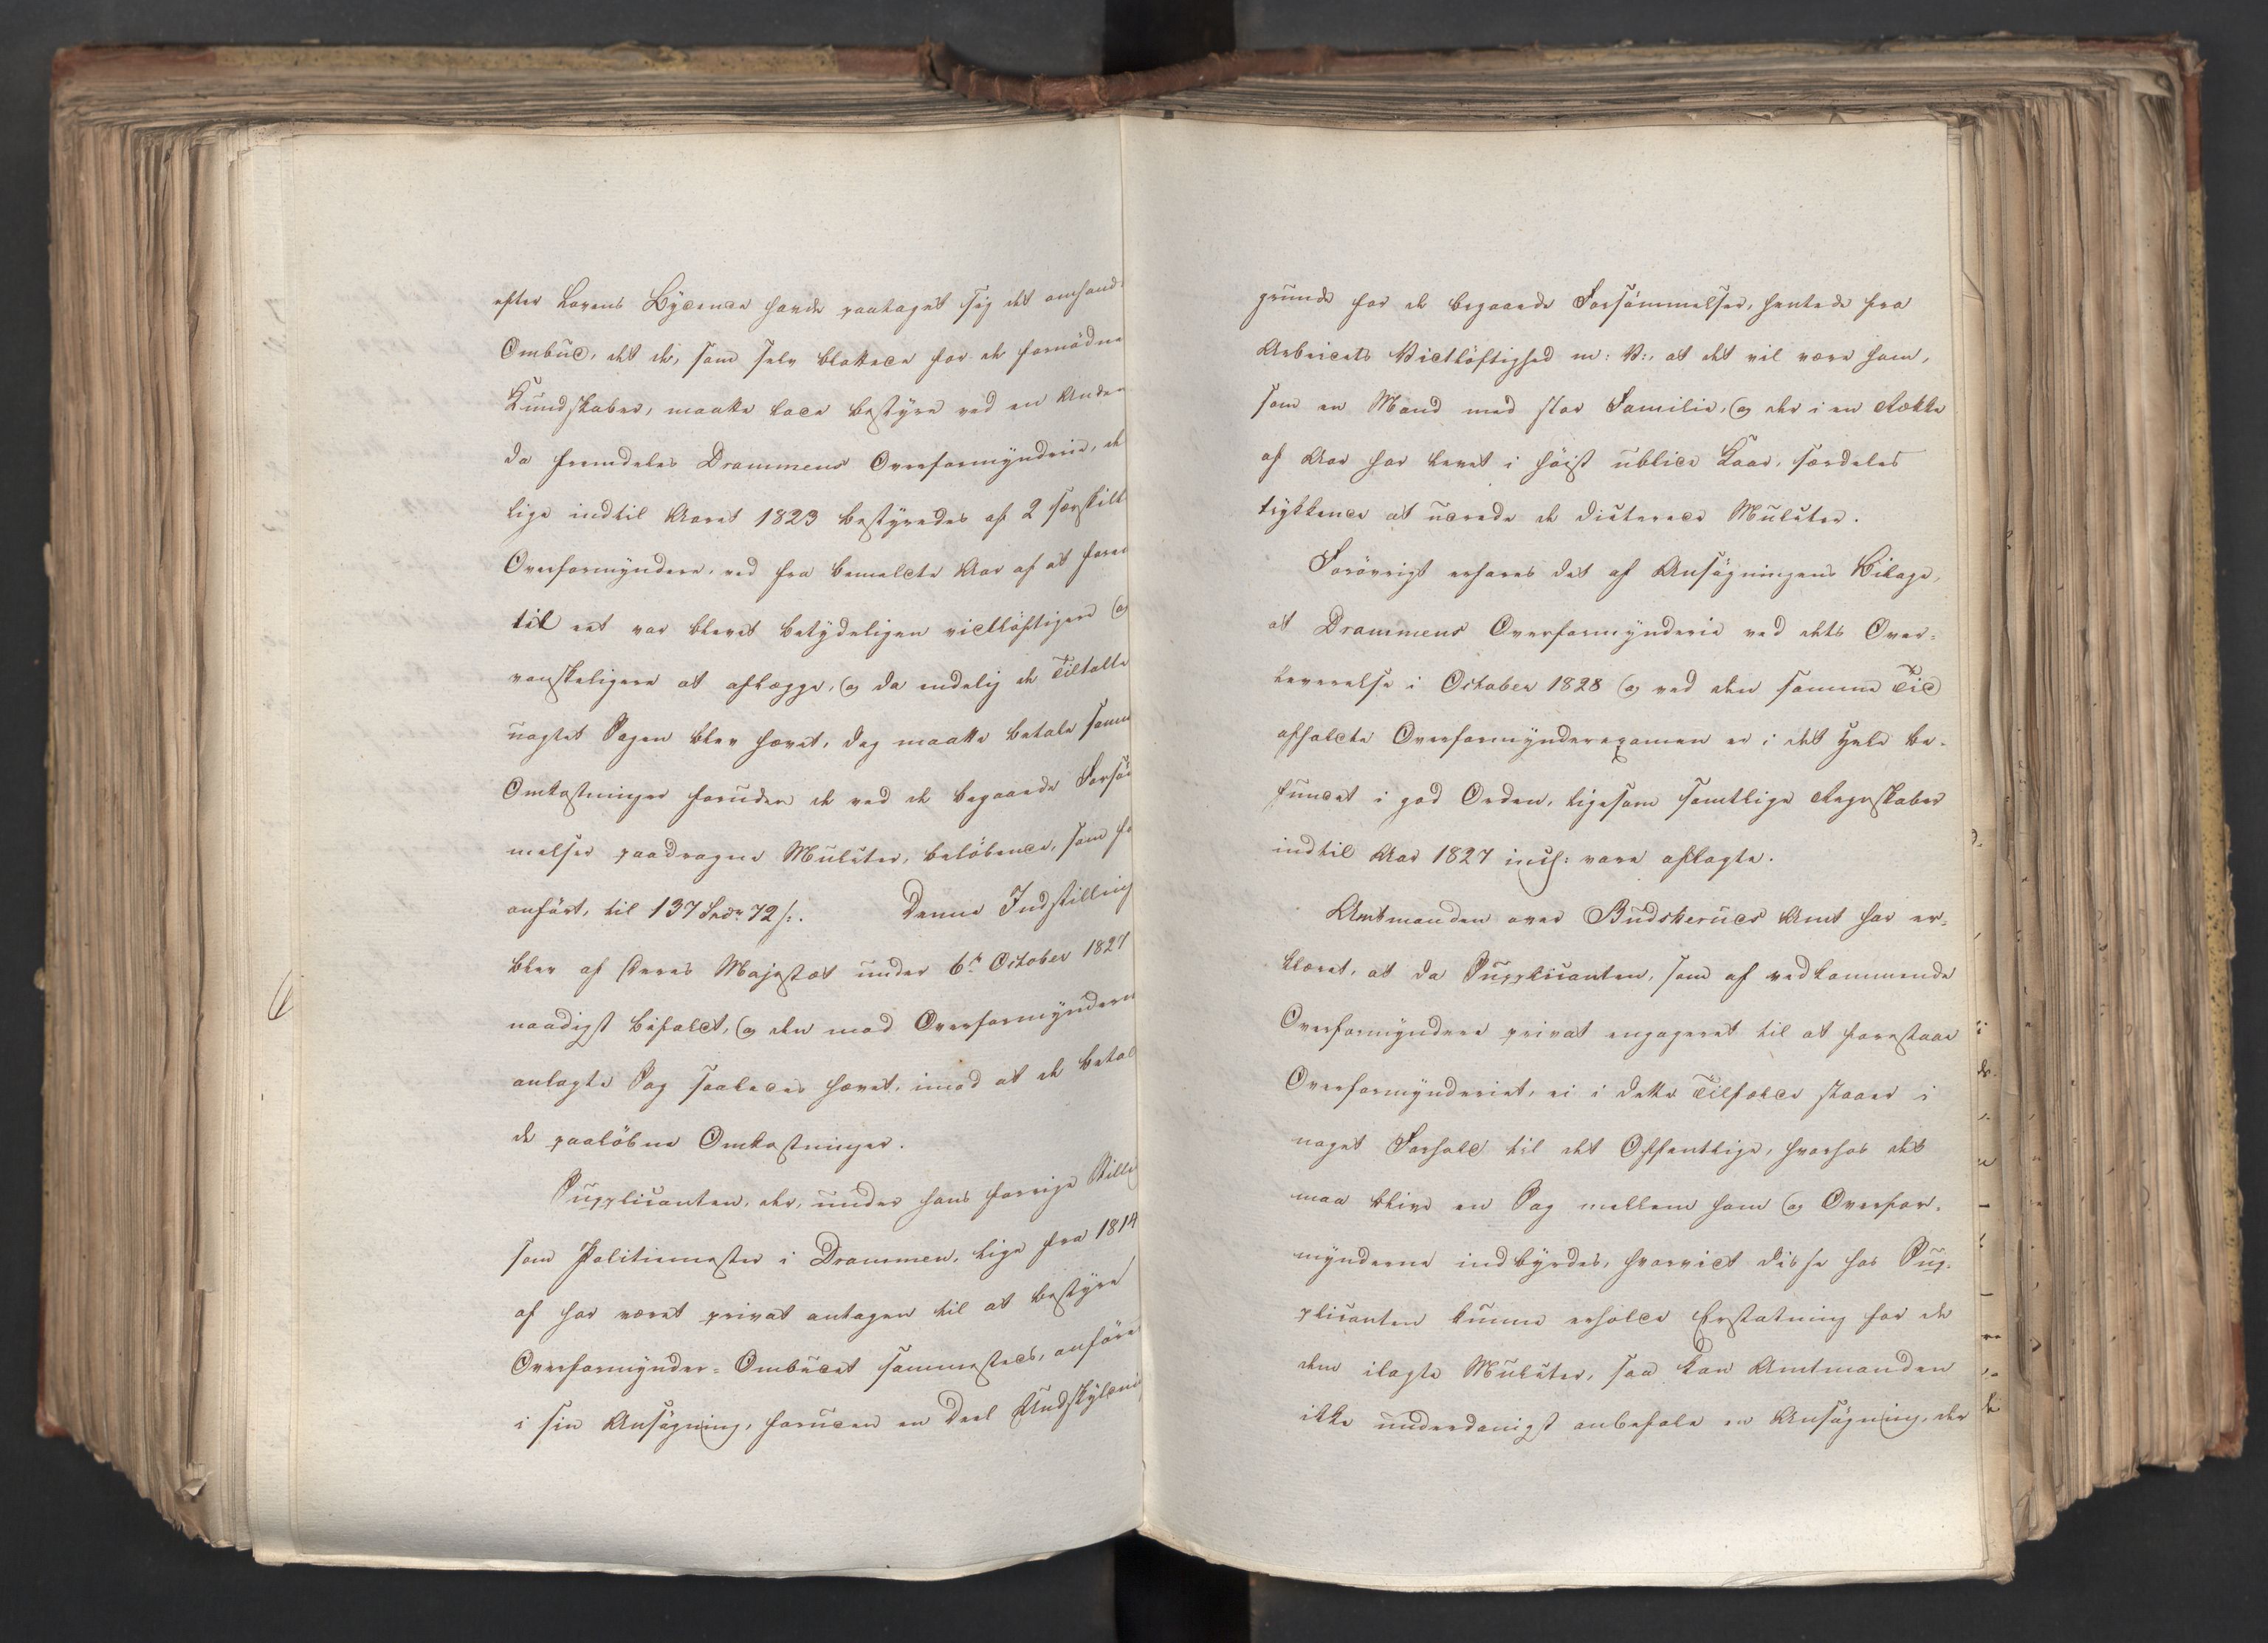 efter Lovens Bydende havde paataget sig det omhand
Ombud, det de, som selv blottede for de fornødne
Kundskaber, maatte lade bestyre ved en Anden
da fremdeles Drammens Overformynderie, de
lige indtil Aaret 1823 bestyredes af 2 særskilt
Overformyndere, ved fra bemeldte Aar af at fore
til eet var blevet betydeligen vidtløftigere og
vanskeligere at aflægge, og da endelig de Tiltalte
uagtet Sagen blev hævet, dog maatte betale samm
Omkostninger foruden de ved de begaaede Forsøm
melser paadragne Mulcter, beløbende, som fo
anført, til 137 Spdr 72 s:. Denne Indstilling
blev af Deres Majestæt under 6te October 1827
naadigst bifaldt, og den mod Overformyndern
anlagte Sag saaledes hævet, imod at de betal
de paaløbne Omkostninger.
Supplicanten, der, under hans forrige Stilli
som Politiemester i Drammen, lige fra 1814
af har været privat antagen til at bestyre
Overformynder-Ombudet sammesteds, anføre
i sin Ansøgning, foruden en Deel Undskyldni
grunde for de begaaede Forsømmelser, hentede fra
Arbeidets Vidtløftighed m: V:, at det vil være ham,
som en Mand med stor Familie, og der i en Række
af Aar har levet i høist ublide Kaar, særdeles
trykkende at udrede de dicterede Mulcter.
Forøvrigt erfares det af Ansøgningens Bilage,
at Drammens Overformynderie ved dets Over-
leverelse i October 1828 og ved den samme Tid
afholdte Overformynderexamen er i det Hele be-
fundet i god Orden, ligesom samtlige Regnskaber
indtil Aar 1827 incl: vare aflagte.
Amtmanden over Budskeruds Amt har er-
klæret, at da Supplicanten, som af vedkommende
Overformyndere privat engageret til at forestaae
Overformynderiet, ei i dette Tilfælde staaer i
noget Forhold til det Offentlige, hvorhos det
maa blive en Sag mellem ham og Overfor-
mynderne indbyrdes, hvorvidt disse hos Sup-
plicanten kunne erholde Erstatning for de
dem ilagte Mulcter, saa kan Amtmanden
ikke underdanigst anbefale en Ansøgning, der